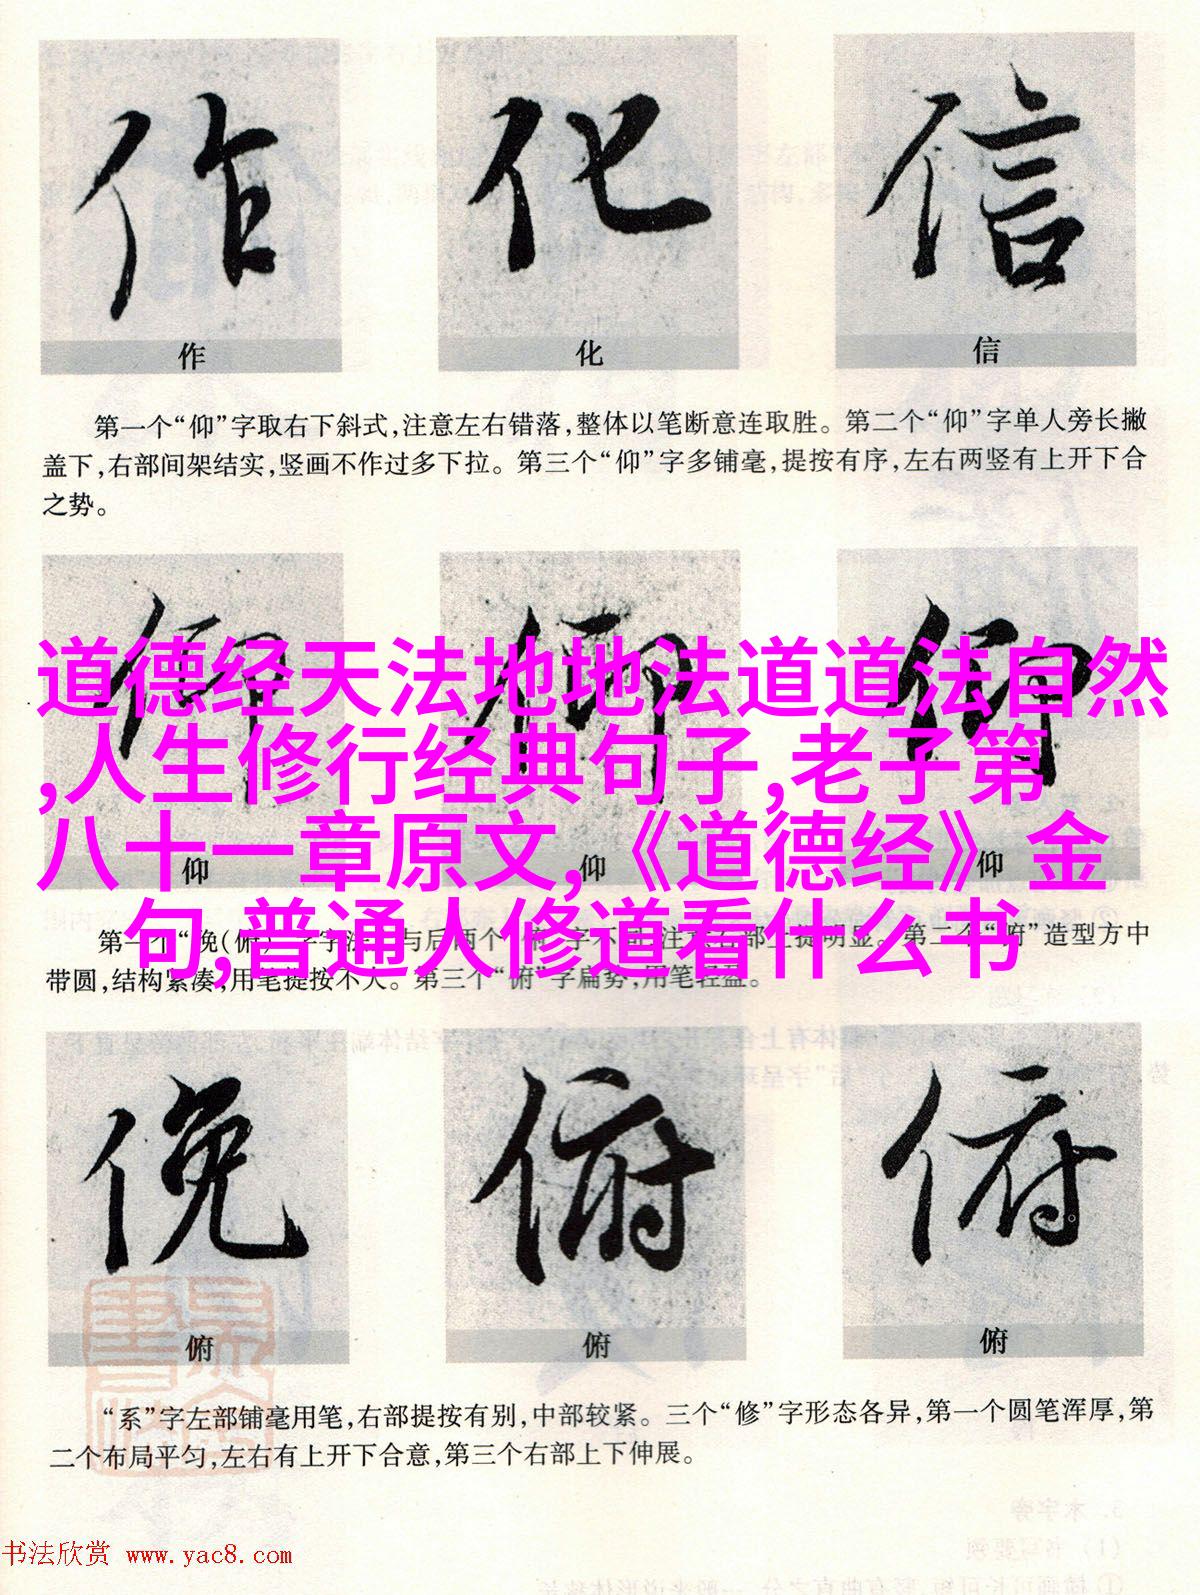 作 化 信
作 化 信
第一个“仰”字取右下斜式,注意左右错落,整体以笔断意连取胜。第二个“仰”字单人旁长撇
盖下,右部间架结实,竖画不作过多下拉。第三个“仰”字多铺毫,提按有序,左右两竖有上开下合
之势。
仰 仰 仰
道德经天法地地法道道法自然
,人生修行经典句子,老子第
八十一章原文,《道德经》金
句,普通人修道看什么书
仰 仰 仰
第一个“俛(俯)”字字法 与后两个 字不同,注意右部上提明显。第二个“俯”造型方中
带圆,结构紧凑,用笔提按不大。第三个“俯”字扁势,用笔轻盈。
俛 俯 俯
俯 俯 俯
“系”字左部铺毫用笔,右部提按有别,中部较紧。三个“修”字形态各异,第一个圆笔浑厚,第
二个布局平匀,左右有上开下合意,第三个右部上下伸展。
书法欣赏 www.yac8.com